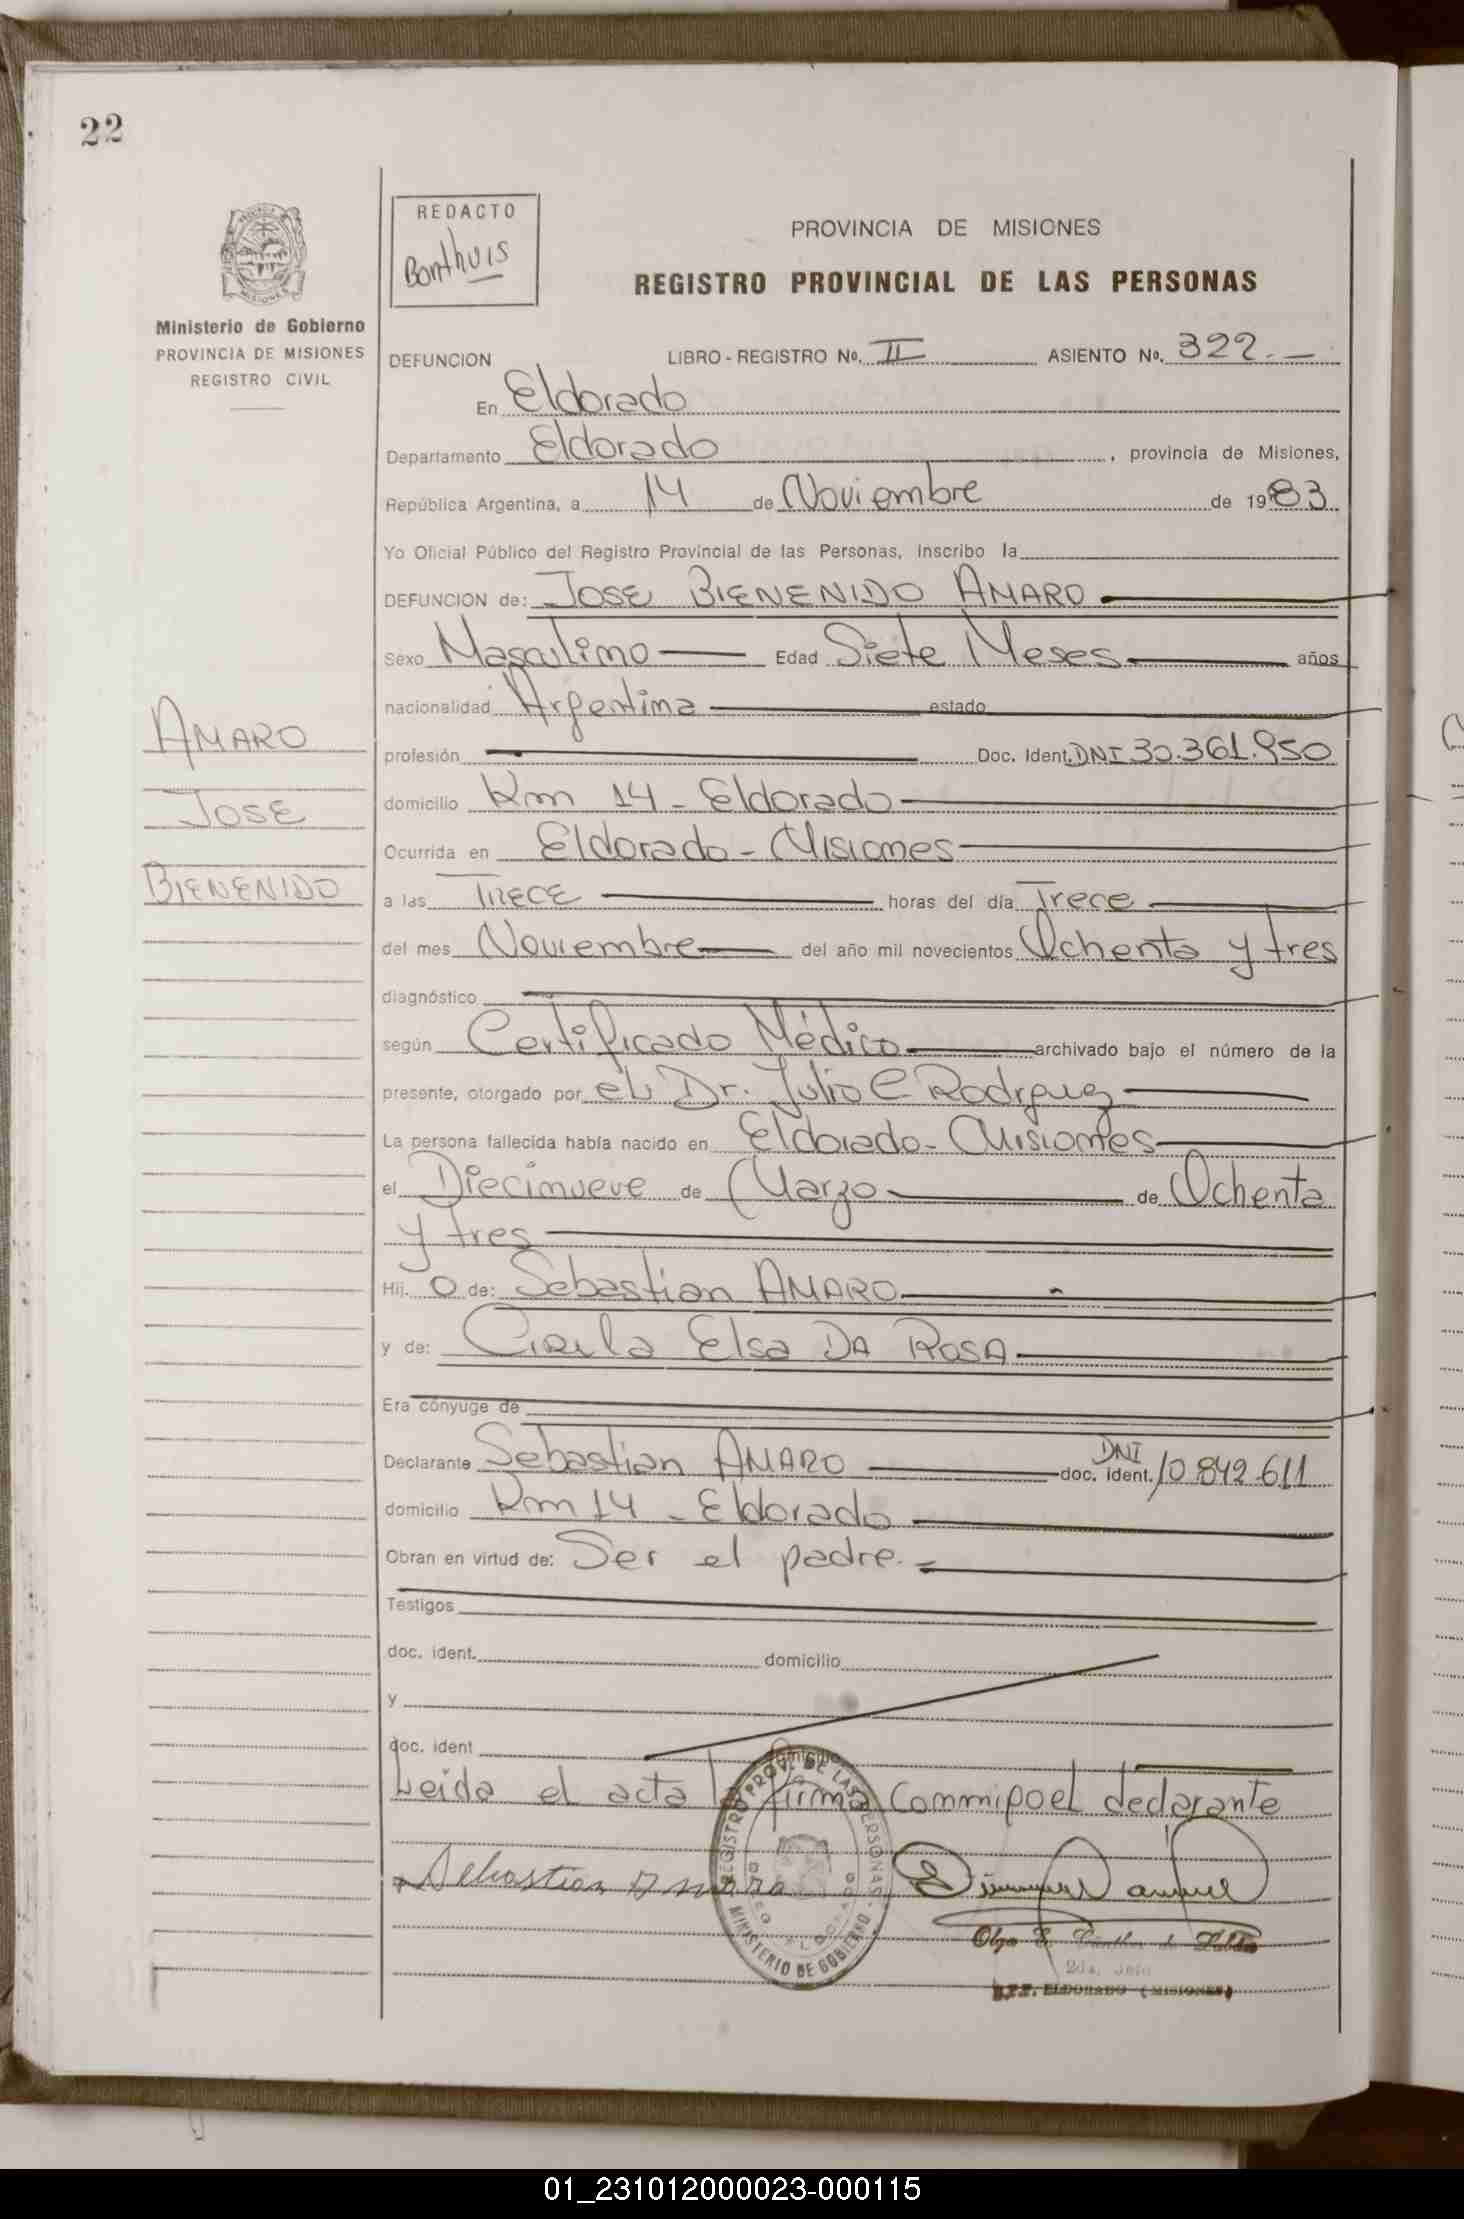 22
REDACTO
Bonthuis
PROVINCIA DE MISIONES
REGISTRO PROVINCIAL DE LAS PERSONAS
Ministerio de Gobierno
PROVINCIA DE MISIONES
REGISTRO CIVIL
DEFUNCION LIBRO - REGISTRO No. II ASIENTO No. 322.
En Eldorado
Departamento Eldorado, provincia de Misiones,
República Argentina, a 14 de Noviembre de 1983
Yo Oficial Público del Registro Provincial de las Personas, inscribo la
DEFUNCION de: JOSE BIENENIDO AMARO
Sexo Masculino Edad Siete Meses años
nacionalidad Argentina estado
profesión Doc. Ident. DNI 30.361.950
domicilio Km 14 - Eldorado
Ocurrida en Eldorado - Misiones
a las TRECE horas del día Trece
del mes Noviembre del año mil novecientos Ochenta y tres
diagnóstico
según Certificado Médico archivado bajo el número de la
presente, otorgado por el Dr. Julio C Rodriguez
La persona fallecida había nacido en Eldorado - Misiones
el Diecinueve de Marzo de Ochenta
y tres
Hij. o de: Sebastian AMARO
y de: Elsa DA ROSA
Era cónyuge de
Declarante Sebastian AMARO doc. ident. DNI 10.842.611
domicilio Km 14 - Eldorado
Obran en virtud de: Ser el padre.
Testigos
doc. ident. domicilio
y
doc. ident domicilio
Leida el acta la firma conmigo el declarante
Sebastian Amaro
REGISTRO PROV. DE LAS PERSONAS
MINISTERIO DE GOBIERNO
Olga E.
ELDORADO (MISIONES)
AMARO
JOSE
BIENENIDO
01_231012000023-000115